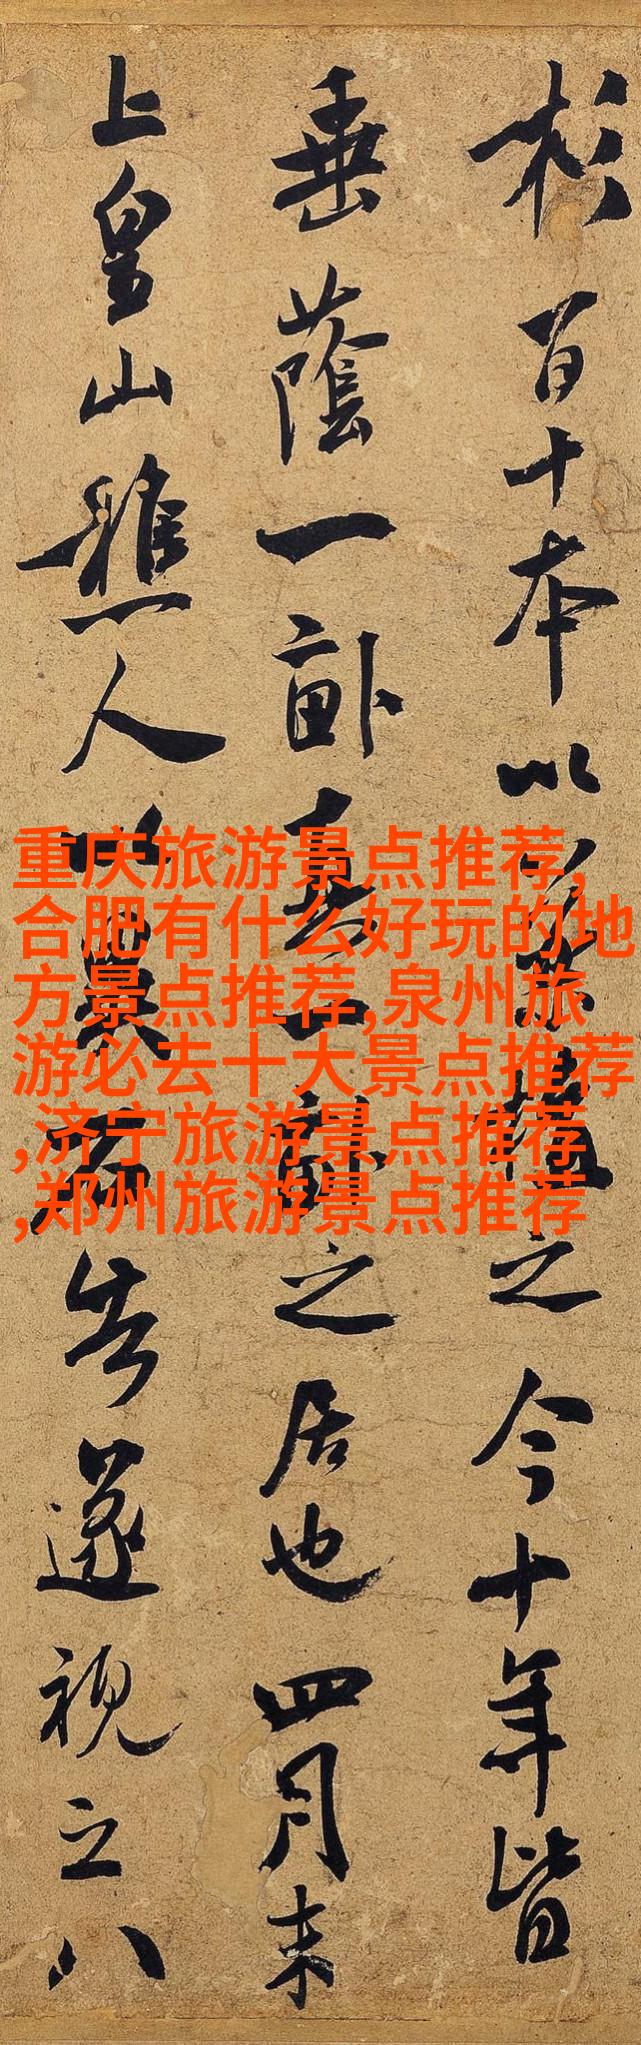 杉百十本以植之今十年皆
垂蔭一畝之居也四月末
上皇山樵人以異石告遂視之八
重庆旅游景点推荐,
合肥有什么好玩的地
方景点推荐,泉州旅
游必去十大景点推荐
,济宁旅游景点推荐
,郑州旅游景点推荐